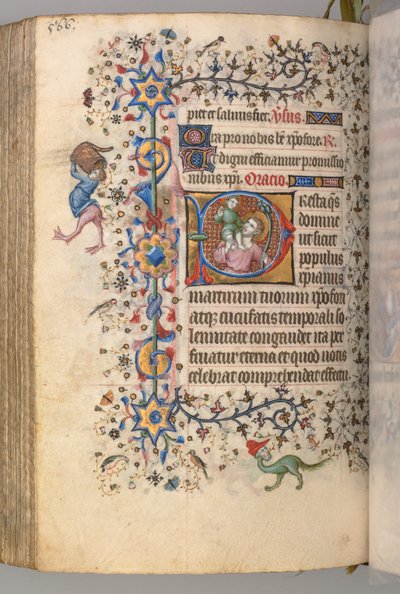 566.
piet et saluus fiet. Vsus.
Ora pro nobis bē xpofore. R.
Ut digni efficiamur promissio
nibus xpi. Oracio.
Presta qs
domine
ut sicut
populus
xpianus
martirum tuorum xpofori
atqz cucufatis temporali so
lemnitate congaudet ita per
fruatur eterna et quod uotis
celebrat comprehendat effectu.